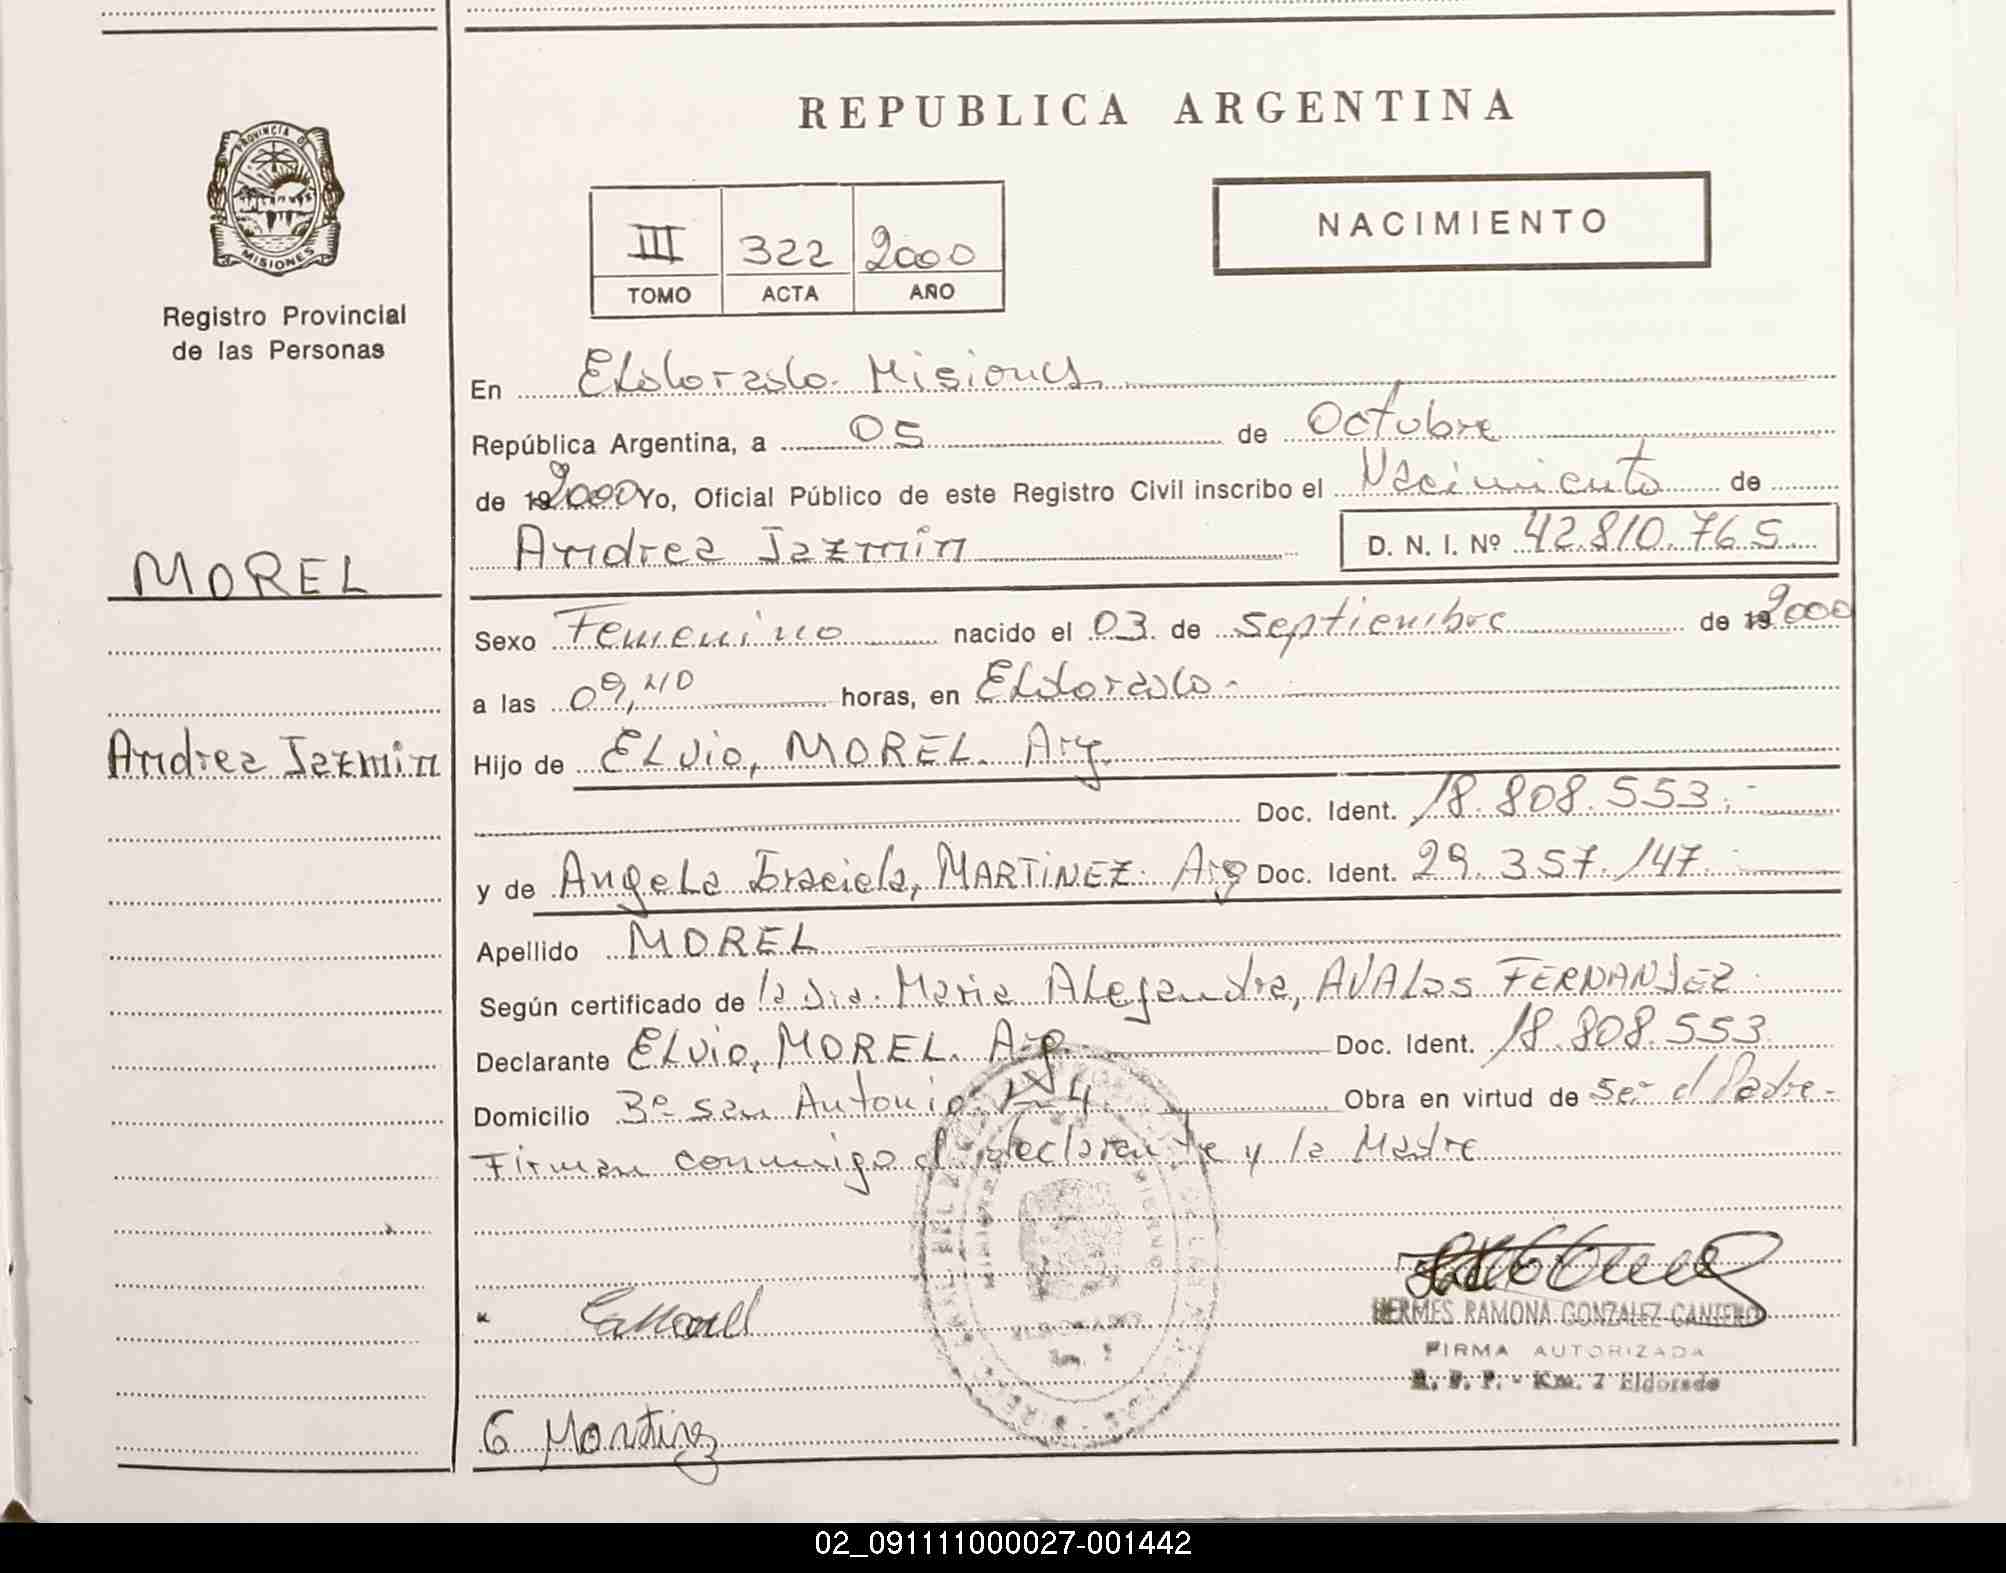 REPUBLICA ARGENTINA
PROVINCIA DE
MISIONES
Registro Provincial
de las Personas
III 322 2000
TOMO ACTA AÑO
NACIMIENTO
En Eldorado. Misiones
República Argentina, a 05 de Octubre
de 192000 Yo, Oficial Público de este Registro Civil inscribo el Nacimiento de
Andrea Jazmin D. N. I. Nº 42.810.765
MOREL
Sexo Femenino nacido el 03 de septiembre de 192000
a las 09,40 horas, en Eldorado-
Andrea Jazmin
Hijo de ELvio, MOREL. Arg.
Doc. Ident. 18.808.553.-
y de Angela Graciela, MARTINEZ. Arg Doc. Ident. 29.357.147.-
Apellido MOREL
Según certificado de la Dra. Maria Alejandra, AVALos FERNANdEZ
Declarante ELvio, MOREL. Arg. Doc. Ident. 18.808.553
Domicilio Bº San Antonio. K-4 Obra en virtud de Ser el Padre-
Firman conmigo el declarante y la Madre
HERMES RAMONA GONZALEZ CANTERO
FIRMA AUTORIZADA
R. P. P. - Km. 7 Eldorado
G Martinez
02_091111000027-001442